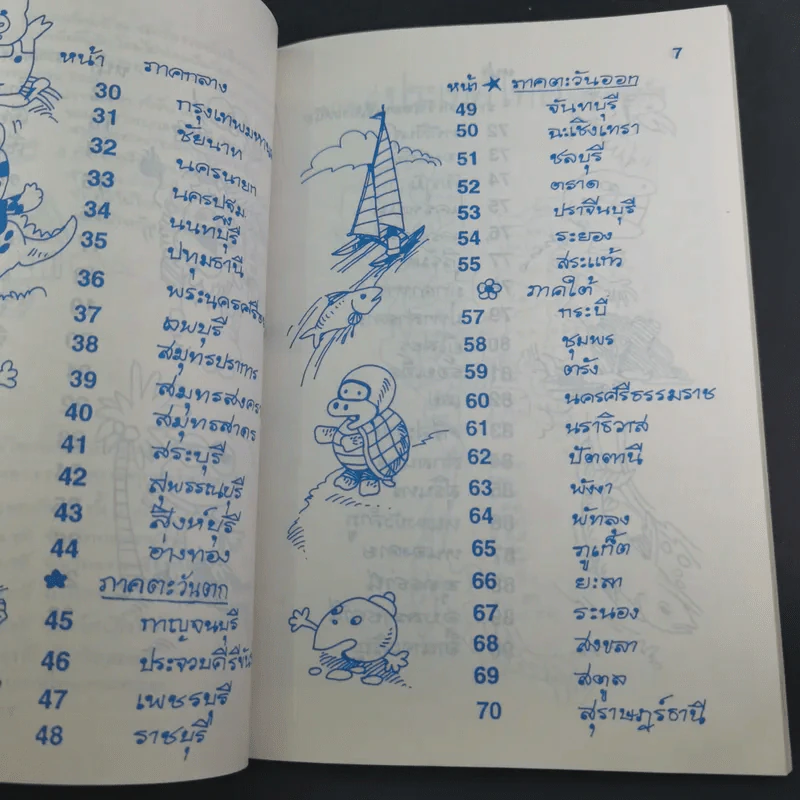 หน้า ภาคกลาง
30 กรุงเทพมหาน
31 ชัยนาท
32 นครนายก
33 นครปฐม
34 นนทบุรี
35 ปทุมธานี
36 พระนครศรีอ
37 ลพบุรี
38 สมุทรปราการ
39 สมุทรสงคร
40 สมุทรสาคร
41 สระบุรี
42 สุพรรณบุรี
43 สิงห์บุรี
44 อ่างทอง
ภาคตะวันตก
45 กาญจนบุรี
46 ประจวบคีรีขัน
47 เพชรบุรี
48 ราชบุรี
7
หน้า ★ ภาคตะวันออก
49 จันทบุรี
50 ฉะเชิงเทรา
51 ชลบุรี
52 ตราด
53 ปราจีนบุรี
54 ระยอง
55 สระแก้ว
ภาคใต้
57 กระบี่
58 ชุมพร
59 ตรัง
60 นครศรีธรรมราช
61 นราธิวาส
62 ปัตตานี
63 พังงา
64 พัทลุง
65 ภูเก็ต
66 ยะลา
67 ระนอง
68 สงขลา
69 สตูล
70 สุราษฎร์ธานี